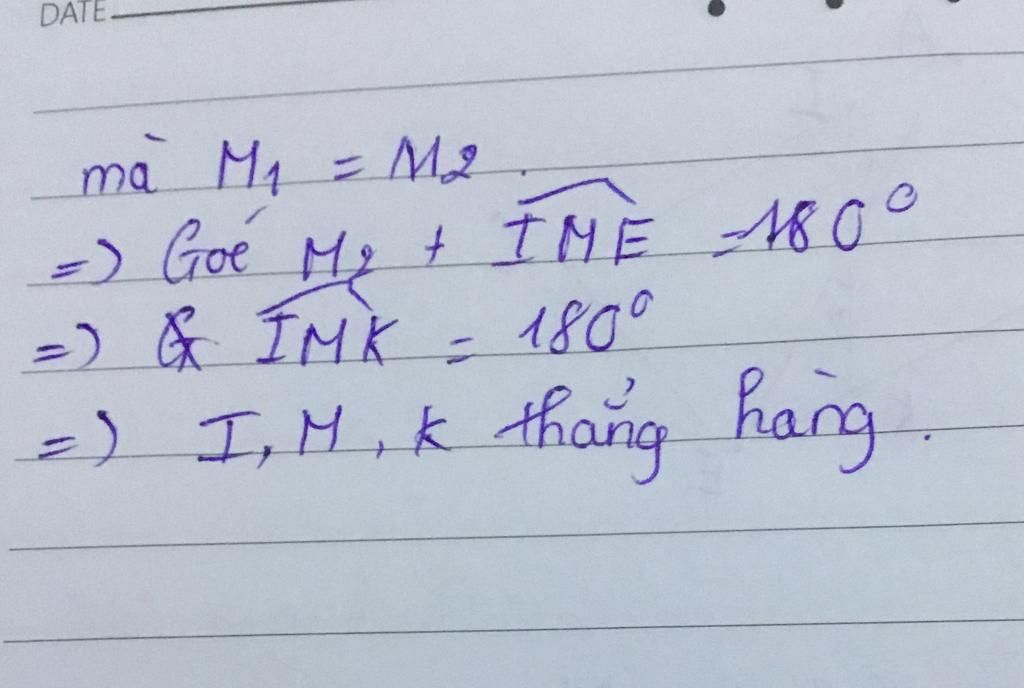 DATE
mà M1 = M2.
=) Góc M2 + IME = 180°
=) IMK = 180°
=) I, M, K thẳng hàng.